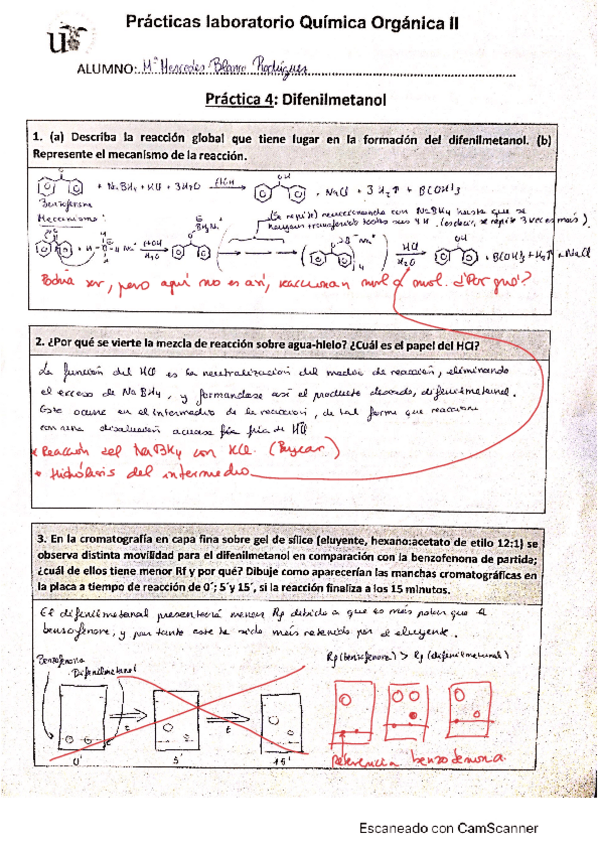 Prácticas laboratorio Química Orgánica II
ALUMNO: Mª Mercedes Blanco Rodríguez
Práctica 4: Difenilmetanol
1. (a) Describa la reacción global que tiene lugar en la formación del difenilmetanol. (b)
Represente el mecanismo de la reacción.
+ NaBH4 + HCl + 3H2O
OH
+ NaCl + 3H2↑ + B(OH)3
Benzofenona
Mecanismo:
(Se repite) reaccionando con NaBH4 hasta que se
hayan transferido todos sus 4H. (es decir, se repite 3 veces más)
HCl
H2O
OH
+ B(OH)3 + H2↑ + NaCl
Podría ser, pero aquí no es así, reaccionan mol a mol. ¿Por qué?
2. ¿Por qué se vierte la mezcla de reacción sobre agua-hielo? ¿Cuál es el papel del HCl?
La función del HCl es la neutralización del medio de reacción, eliminando
el exceso de NaBH4, y formandose así el producto deseado, difenilmetanol.
Este ocurre en el intermedio de la reacción, de tal forma que reacciona
con una disolución acuosa fría de HCl
* Reacción del NaBH4 con HCl. (Buscar)
* Hidrólisis del intermedio
3. En la cromatografía en capa fina sobre gel de sílice (eluyente, hexano:acetato de etilo 12:1) se
observa distinta movilidad para el difenilmetanol en comparación con la benzofenona de partida;
¿cuál de ellos tiene menor Rf y por qué? Dibuje como aparecerían las manchas cromatográficas en
la placa a tiempo de reacción de 0´; 5´y 15´, si la reacción finaliza a los 15 minutos.
El difenilmetanol presentará menor Rf debido a que es más polar que la
benzofenona, y por tanto este ha sido más retenido por el eluyente.
Benzofenona
Difenilmetanol
Rf (benzofenona) > Rf (difenilmetanol)
t
t
0'
5'
15'
Referencia benzofenona
Escaneado con CamScanner